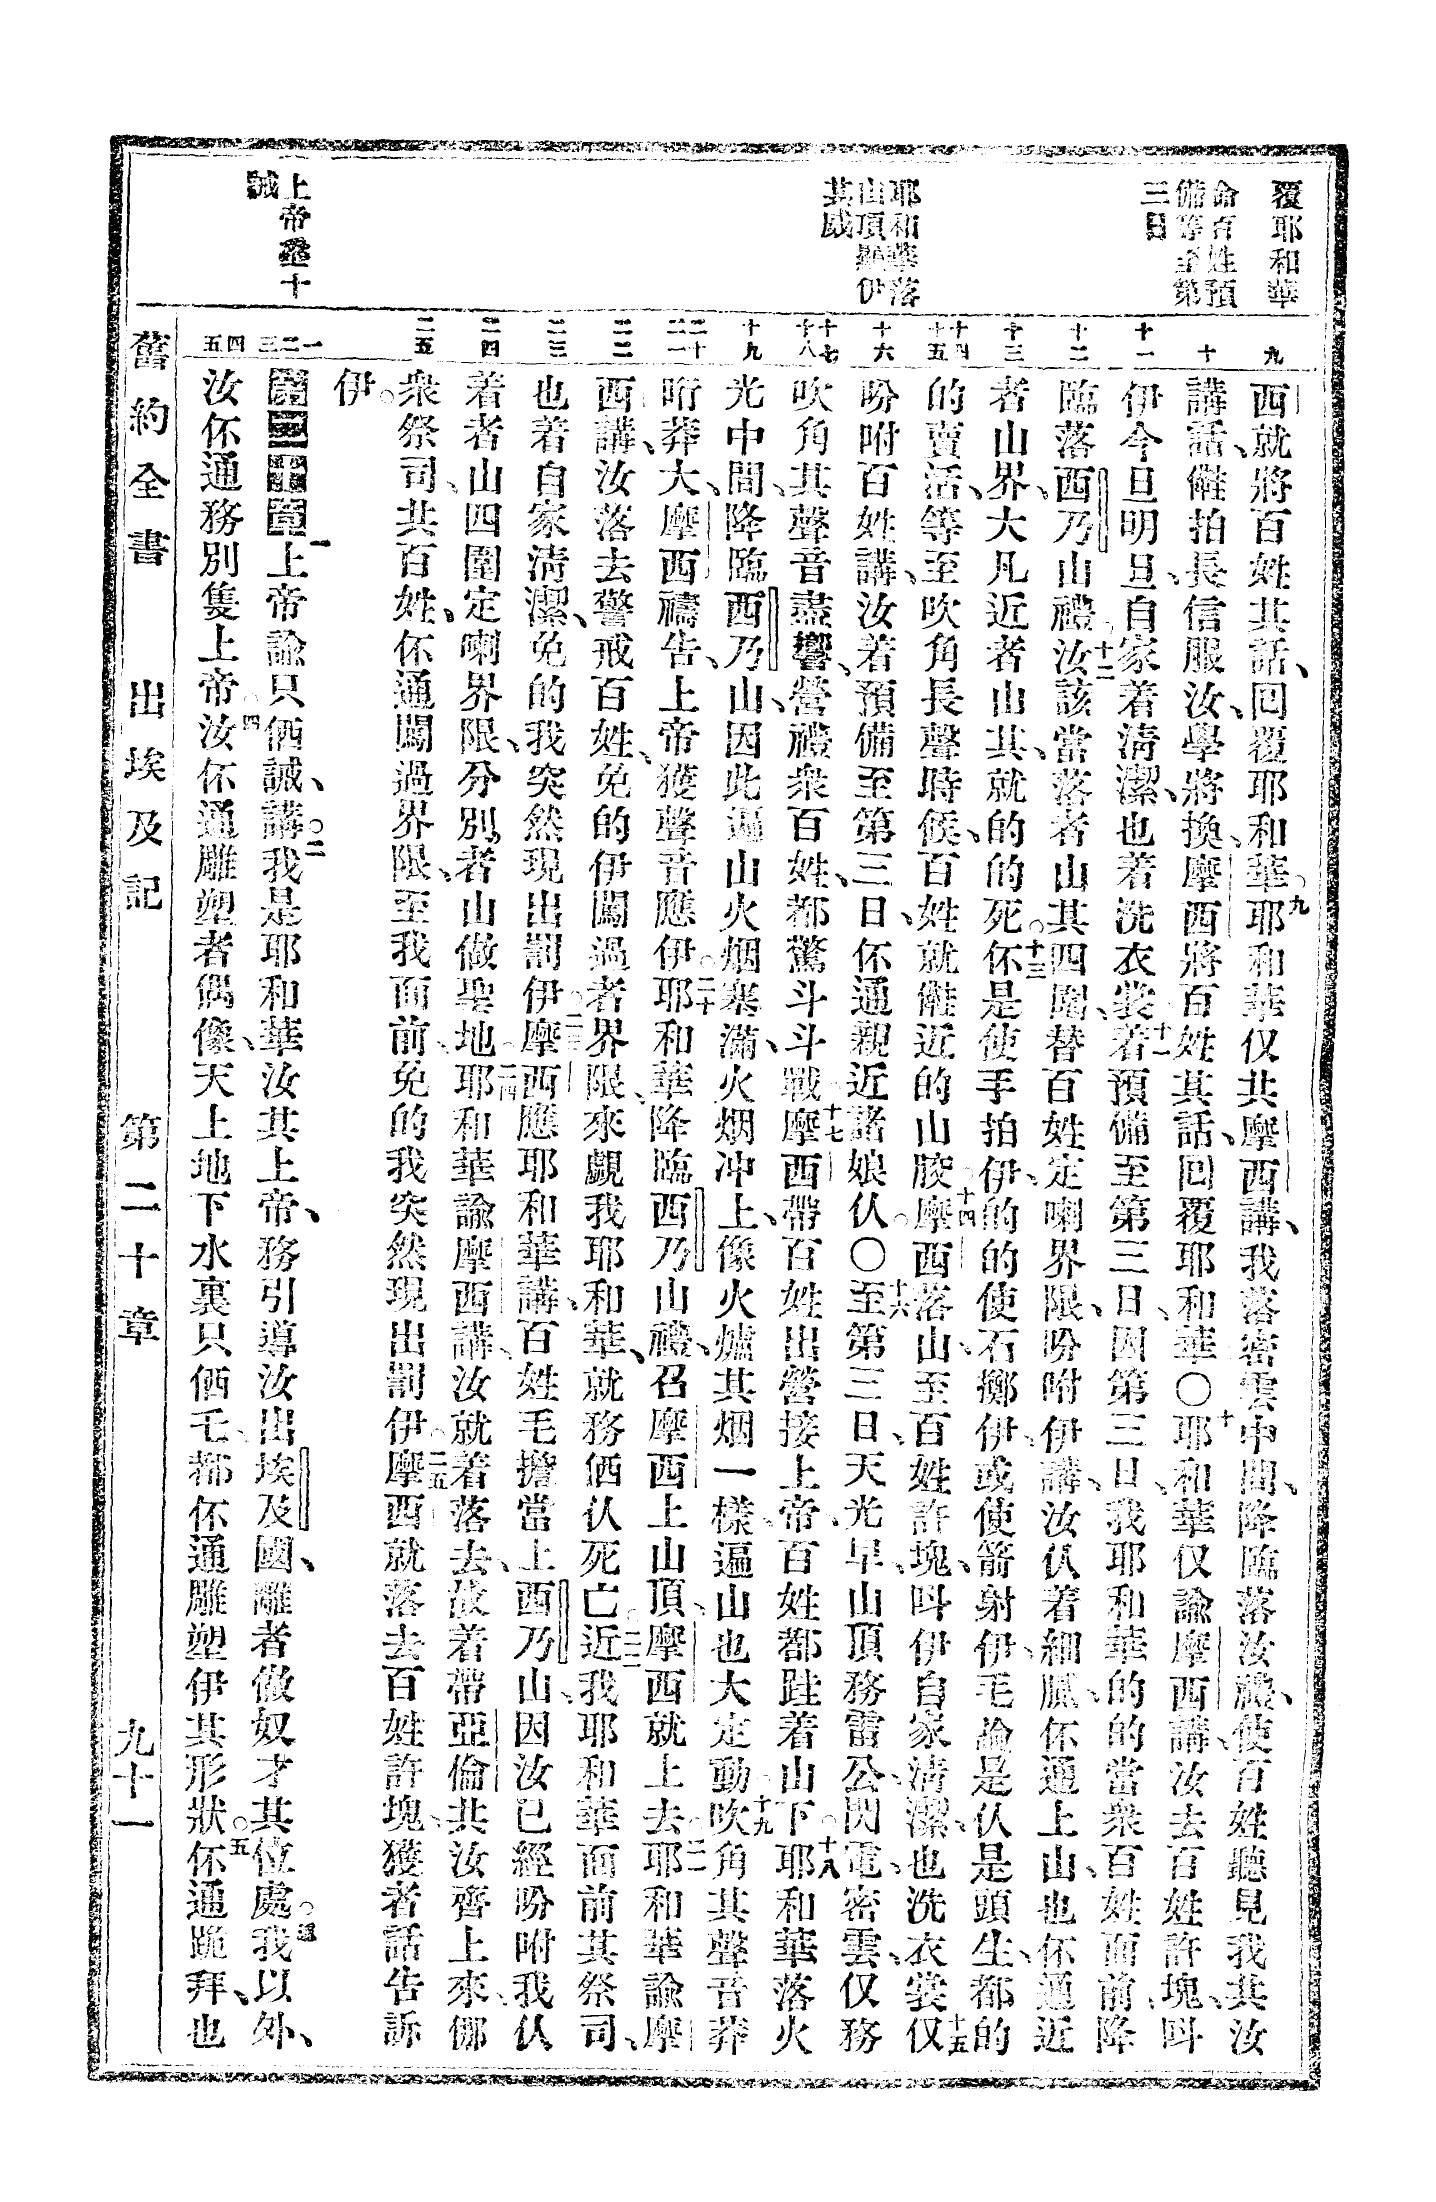 覆耶和華
命百姓預
備等至第
三日
耶和華落
山頂顯伊
其威
上帝垂十
誡
九
西就將百姓其話、回覆耶和華。九耶和華仅共摩西講、我落密雲中間、降臨落汝禮、使百姓聽見我共汝
十
講話、儺拍長信服汝、學將換、摩西將百姓其話、回覆耶和華〇十耶和華仅諭摩西講、汝去百姓許塊、呌
十一
伊今旦明旦、自家着清潔、也着洗衣裳、十一着預備至第三日、因第三日、我耶和華的的當衆百姓面前、降
十二
臨落西乃山禮。十二汝該當落者山其四圍、替百姓定喇界限、吩咐伊講、汝仈着細膩、伓通上山、也伓通近
十三
者山界、大凡近者山其、就的的死。十三伓是使手拍伊、的的使石擲伊、或使箭射伊、毛論是仈是頭生、都的
十四
十五
的賣活、等至吹角長聲時候、百姓就儺近的山胶。十四摩西落山、至百姓許塊、呌伊自家清潔、也洗衣裳、十五仅
十六
吩咐百姓講、汝着預備至第三日、伓通親近諸娘仈。〇十六至第三日、天光早、山頂務雷公閃電、密雲、仅務
十七
十八
吹角其聲音盡響、營禮衆百姓、都驚斗斗戰、十七摩西帶百姓出營接上帝、百姓都跓着山下。十八耶和華落火
十九
光中間、降臨西乃山、因此遍山火烟塞滿、火烟冲上、像火爐其烟一樣、遍山也大定動、十九吹角其聲音莽
二十
二一
㫰莽大、摩西禱告、上帝獲聲音應伊。二十耶和華降臨西乃山禮、召摩西上山頂、摩西就上去。二一耶和華諭摩
二二
西講、汝落去警戒百姓、免的伊闖過者界限、來覷我耶和華、就務価仈死亡。二二近我耶和華面前其祭司、
二三
也着自家清潔、免的我突然現出罰伊。二三摩西應耶和華講、百姓毛擔當上西乃山、因汝已經吩咐我仈
二四
着者山四圍定喇界限、分別者山做聖地。二四耶和華諭摩西講、汝就着落去、故着帶亞倫共汝齊上來、挪
二五
衆祭司共百姓、伓通闖過界限、至我面前、免的我突然現出罰伊。二五摩西就落去百姓許塊、獲者話告訴
伊。
一
二
三
第二十章一上帝諭只価誡、講、〇二我是耶和華汝其上帝、務引導汝出埃及國、離者做奴才其位處。三我以外、
四
五
汝伓通務別隻上帝。四汝伓通雕塑者偶像、天上地下水裏只価乇、都伓通雕塑伊其形狀。五伓通跪拜、也
舊約全書 出埃及記 第二十章 九十一